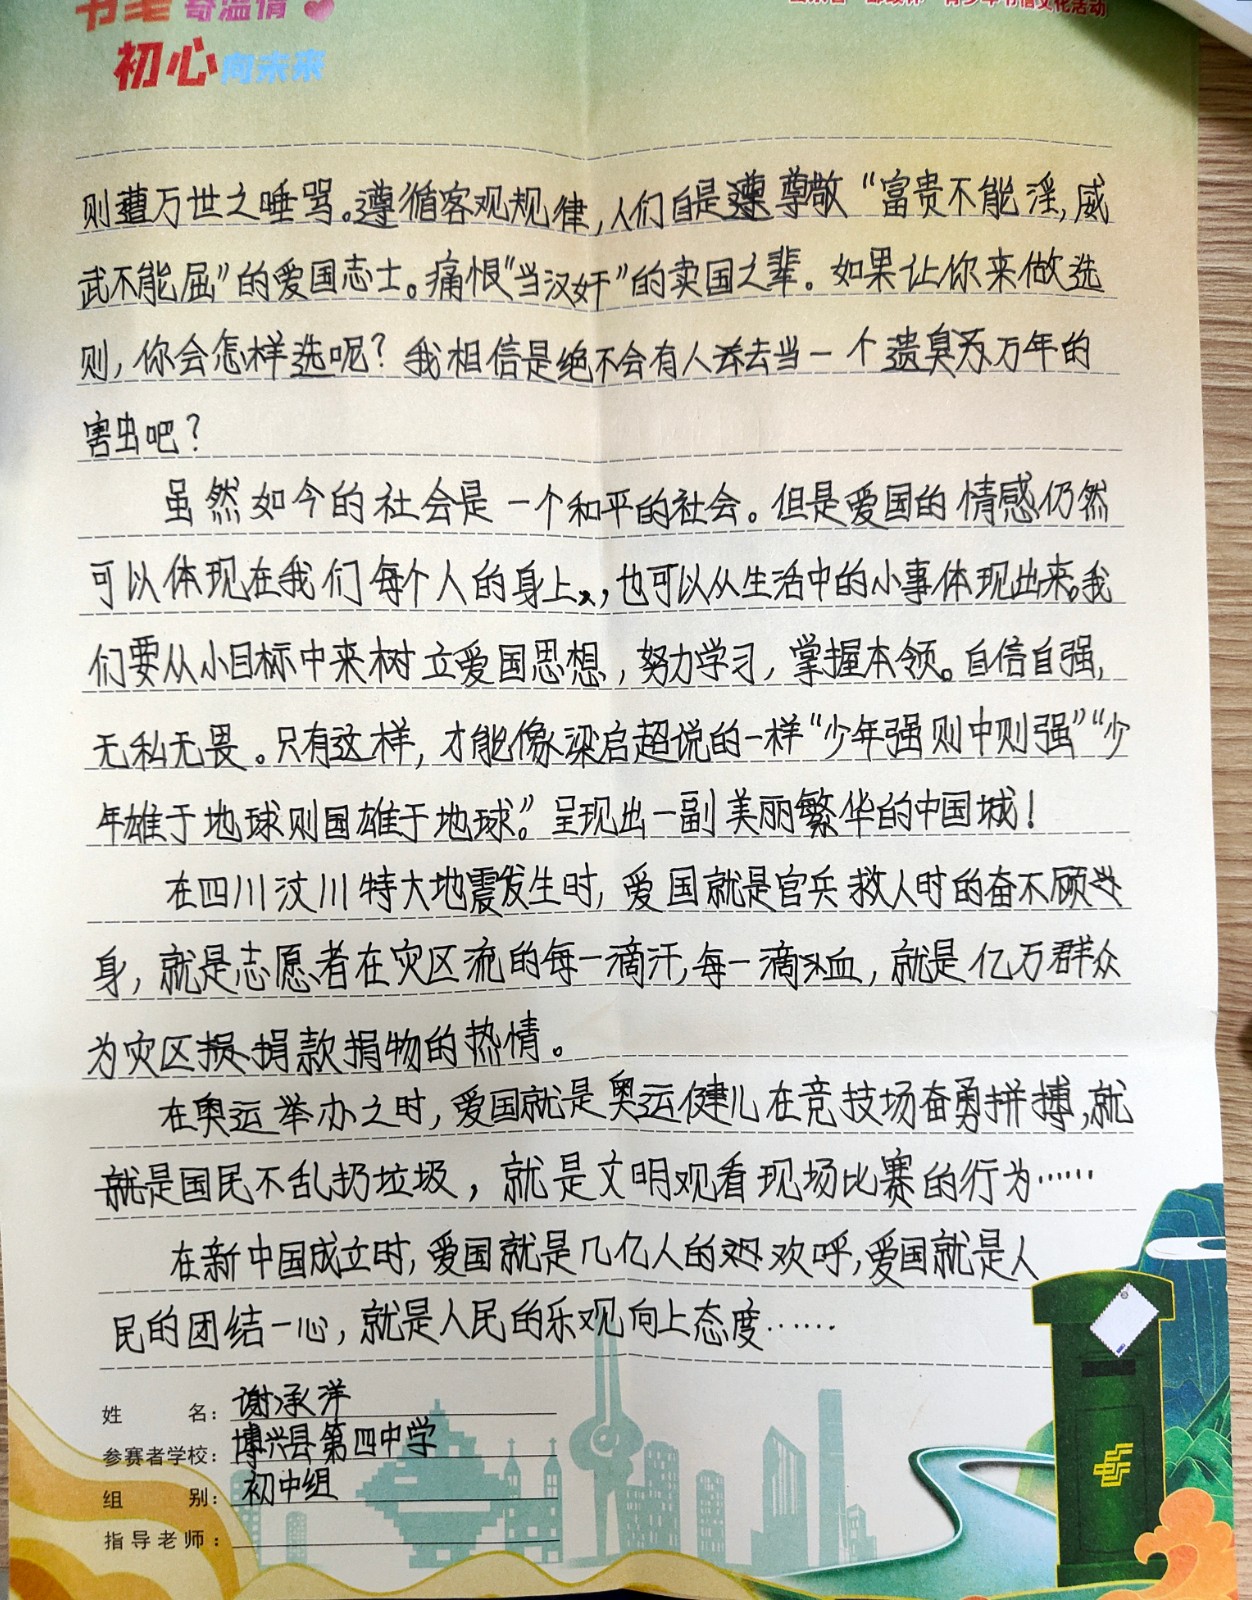 书笔寄温情
初心向未来
青少年书信文化活动
则遭万世之唾骂。遵循客观规律,人们自是尊敬“富贵不能淫,威
武不能屈”的爱国志士。痛恨“当汉奸”的卖国之辈。如果让你来做选
则,你会怎样选呢?我相信是绝不会有人去当一个遗臭万年的
害虫吧?
虽然如今的社会是一个和平的社会。但是爱国的情感仍然
可以体现在我们每个人的身上,也可以从生活中的小事体现出来。我
们要从小目标中来树立爱国思想,努力学习,掌握本领。自信自强,
无私无畏。只有这样,才能像梁启超说的一样“少年强则中则强”“少
年雄于地球则国雄于地球。”呈现出一副美丽繁华的中国城!
在四川汶川特大地震发生时,爱国就是官兵救人时的奋不顾
身,就是志愿者在灾区流的每一滴汗,每一滴血,就是亿万群众
为灾区捐款捐物的热情。
在奥运举办之时,爱国就是奥运健儿在竞技场奋勇拼搏,就
就是国民不乱扔垃圾,就是文明观看现场比赛的行为……
在新中国成立时,爱国就是几亿人的欢呼,爱国就是人
民的团结一心,就是人民的乐观向上态度……
姓名:谢承洋
参赛者学校:博兴县第四中学
组别:初中组
指导老师: